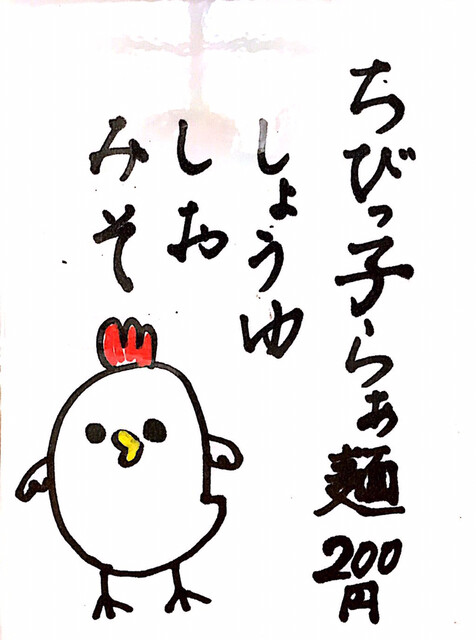 ちびっ子らぁ麺
200
円
しょうゆ
しお
みそ